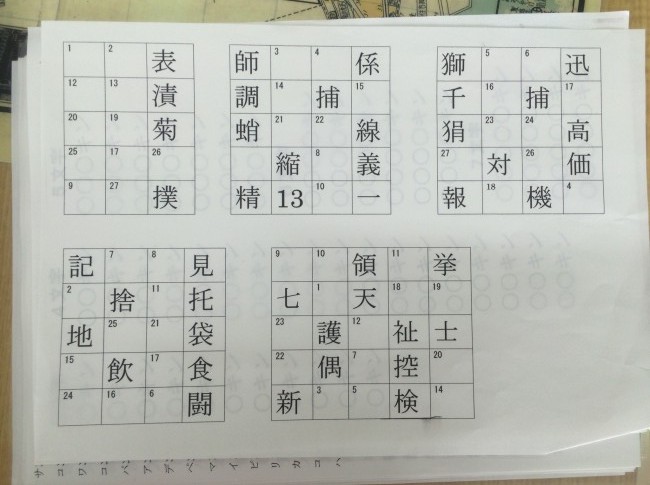 1 2 表
12 13 漬
20 19 菊
25 17 26
9 27 撲
師 3 4 係
調 14 捕 15
蛸 21 22 線
縮 8 義
精 13 10 一
獅 5 6 迅
千 16 捕 17
狷 23 24 高
27 対 26 価
報 18 機 4
記 7 8 見
2 捨 11 托
地 25 21 袋
15 飲 17 食
24 16 6 闘
9 10 領 11 挙
七 1 天 18 19
23 護 12 祉 士
22 偶 7 控 20
新 3 5 検 14